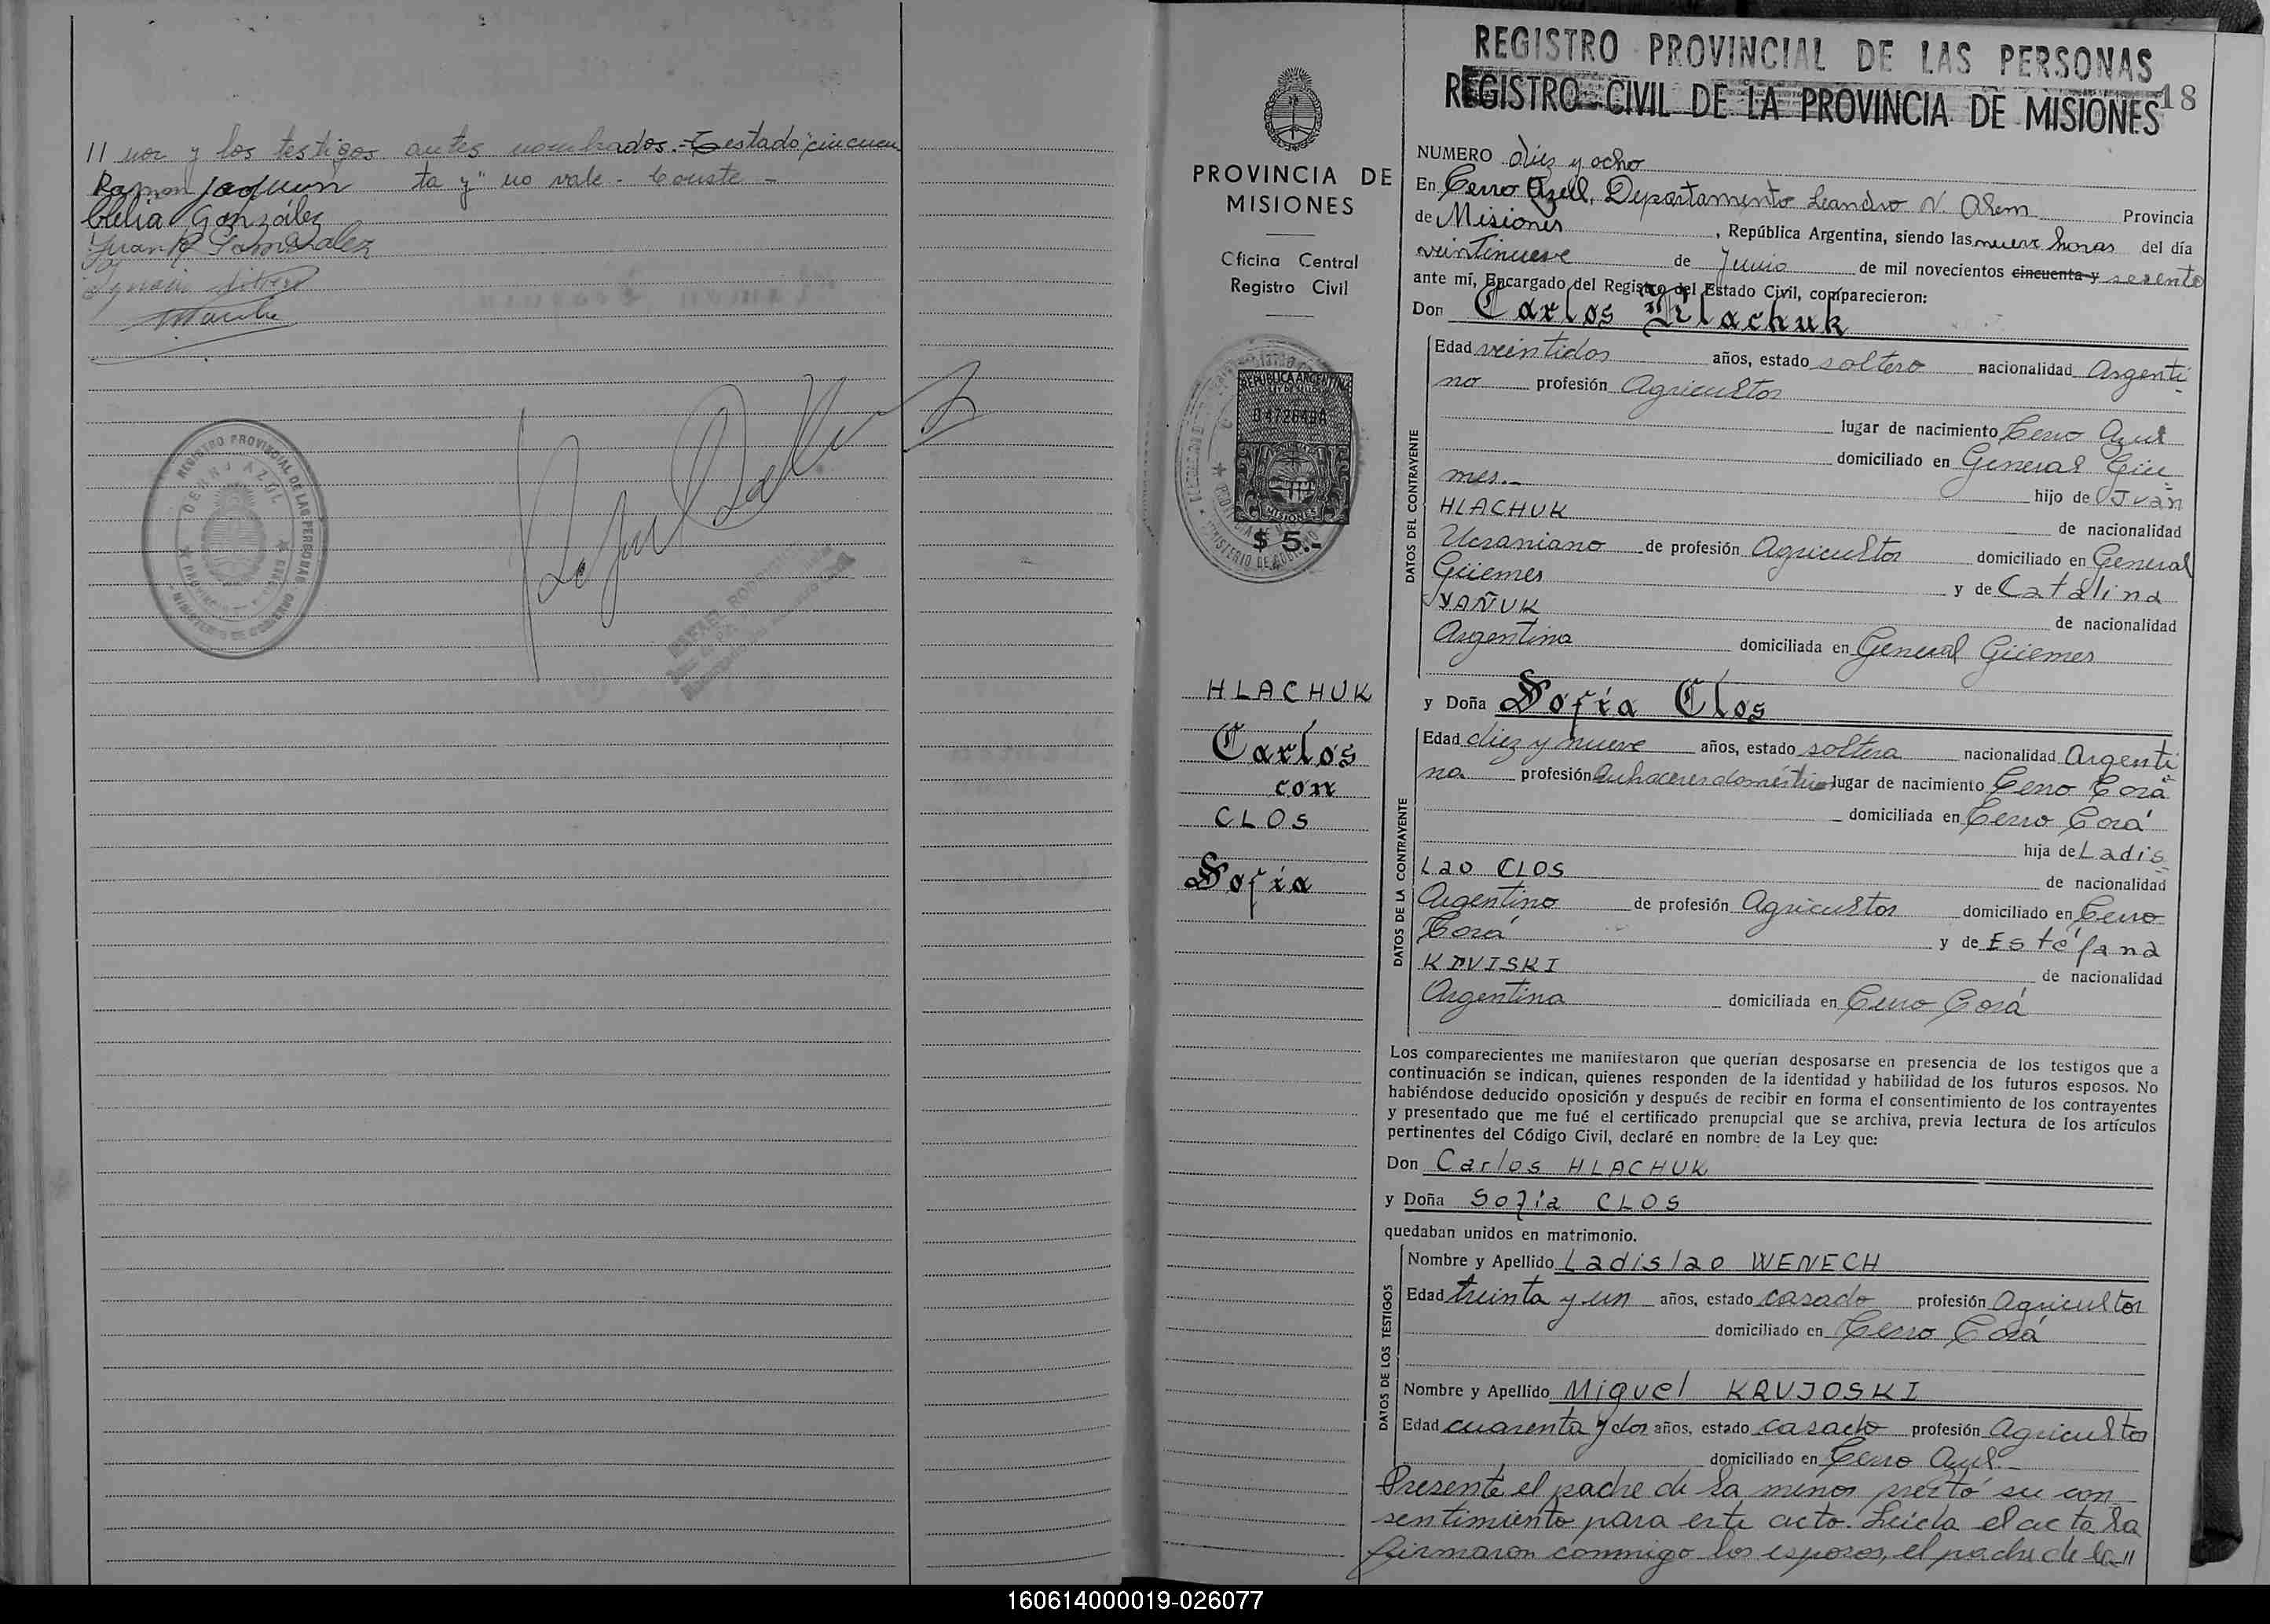 // nor y los testigos antes nombrados.= Testado "cincuen
ta y" no vale - Conste -
Ramon Joaquin
Celia González
Juan
REGISTRO PROVINCIAL DE LAS PERSONAS
CERRO AZUL
REGISTRO PROVINCIAL DE LAS PERSONAS
REGISTRO CIVIL DE LA PROVINCIA DE MISIONES
18
PROVINCIA DE
MISIONES
Oficina Central
Registro Civil
REPUBLICA ARGENTINA
MISIONES
$ 5.-
HLACHUK
Carlos
con
CLOS
Sofía
NUMERO diez y ocho
En Cerro Azul, Departamento Leandro N. Alem Provincia
de Misiones, República Argentina, siendo las nueve horas del día
veintinueve de Junio de mil novecientos cincuenta y sesenta
ante mí, Encargado del Registro del Estado Civil, comparecieron:
Don Carlos Hlachuk
DATOS DEL CONTRAYENTE
Edad veintidos años, estado soltero nacionalidad Argenti
no profesión Agricultor
lugar de nacimiento Cerro Azul
domiciliado en General Güe
mes.-
hijo de Juan
HLACHUK
de nacionalidad
Ucraniano de profesión Agricultor domiciliado en General
Güemes
y de Catalina
YAÑUK
de nacionalidad
Argentina domiciliada en General Güemes
y Doña Sofía Clos
DATOS DE LA CONTRAYENTE
Edad diez y nueve años, estado soltera nacionalidad Argenti
na profesión Quehaceres domésticos lugar de nacimiento Cerro Corá
domiciliada en Cerro Corá
hija de Ladis
lao CLOS
de nacionalidad
Argentino de profesión Agricultor domiciliado en Cerro
Corá
y de Estéfana
de nacionalidad
Argentina domiciliada en Cerro Corá
Los comparecientes me manifestaron que querían desposarse en presencia de los testigos que a
continuación se indican, quienes responden de la identidad y habilidad de los futuros esposos. No
habiéndose deducido oposición y después de recibir en forma el consentimiento de los contrayentes
y presentado que me fué el certificado prenupcial que se archiva, previa lectura de los artículos
pertinentes del Código Civil, declaré en nombre de la Ley que:
Don Carlos HLACHUK
y Doña Sofía CLOS
quedaban unidos en matrimonio.
DATOS DE LOS TESTIGOS
Nombre y Apellido Ladislao WENECH
Edad treinta y un años, estado casado profesión Agricultor
domiciliado en Cerro Corá
Nombre y Apellido Miguel KRUJOSKI
Edad cuarenta y dos años, estado casado profesión Agricultor
domiciliado en Cerro Azul.-
Presente el padre de la menor prestó su con
sentimiento para este acto. Leída el acta la
firmaron conmigo los esposos, el padre de la //
160614000019-026077